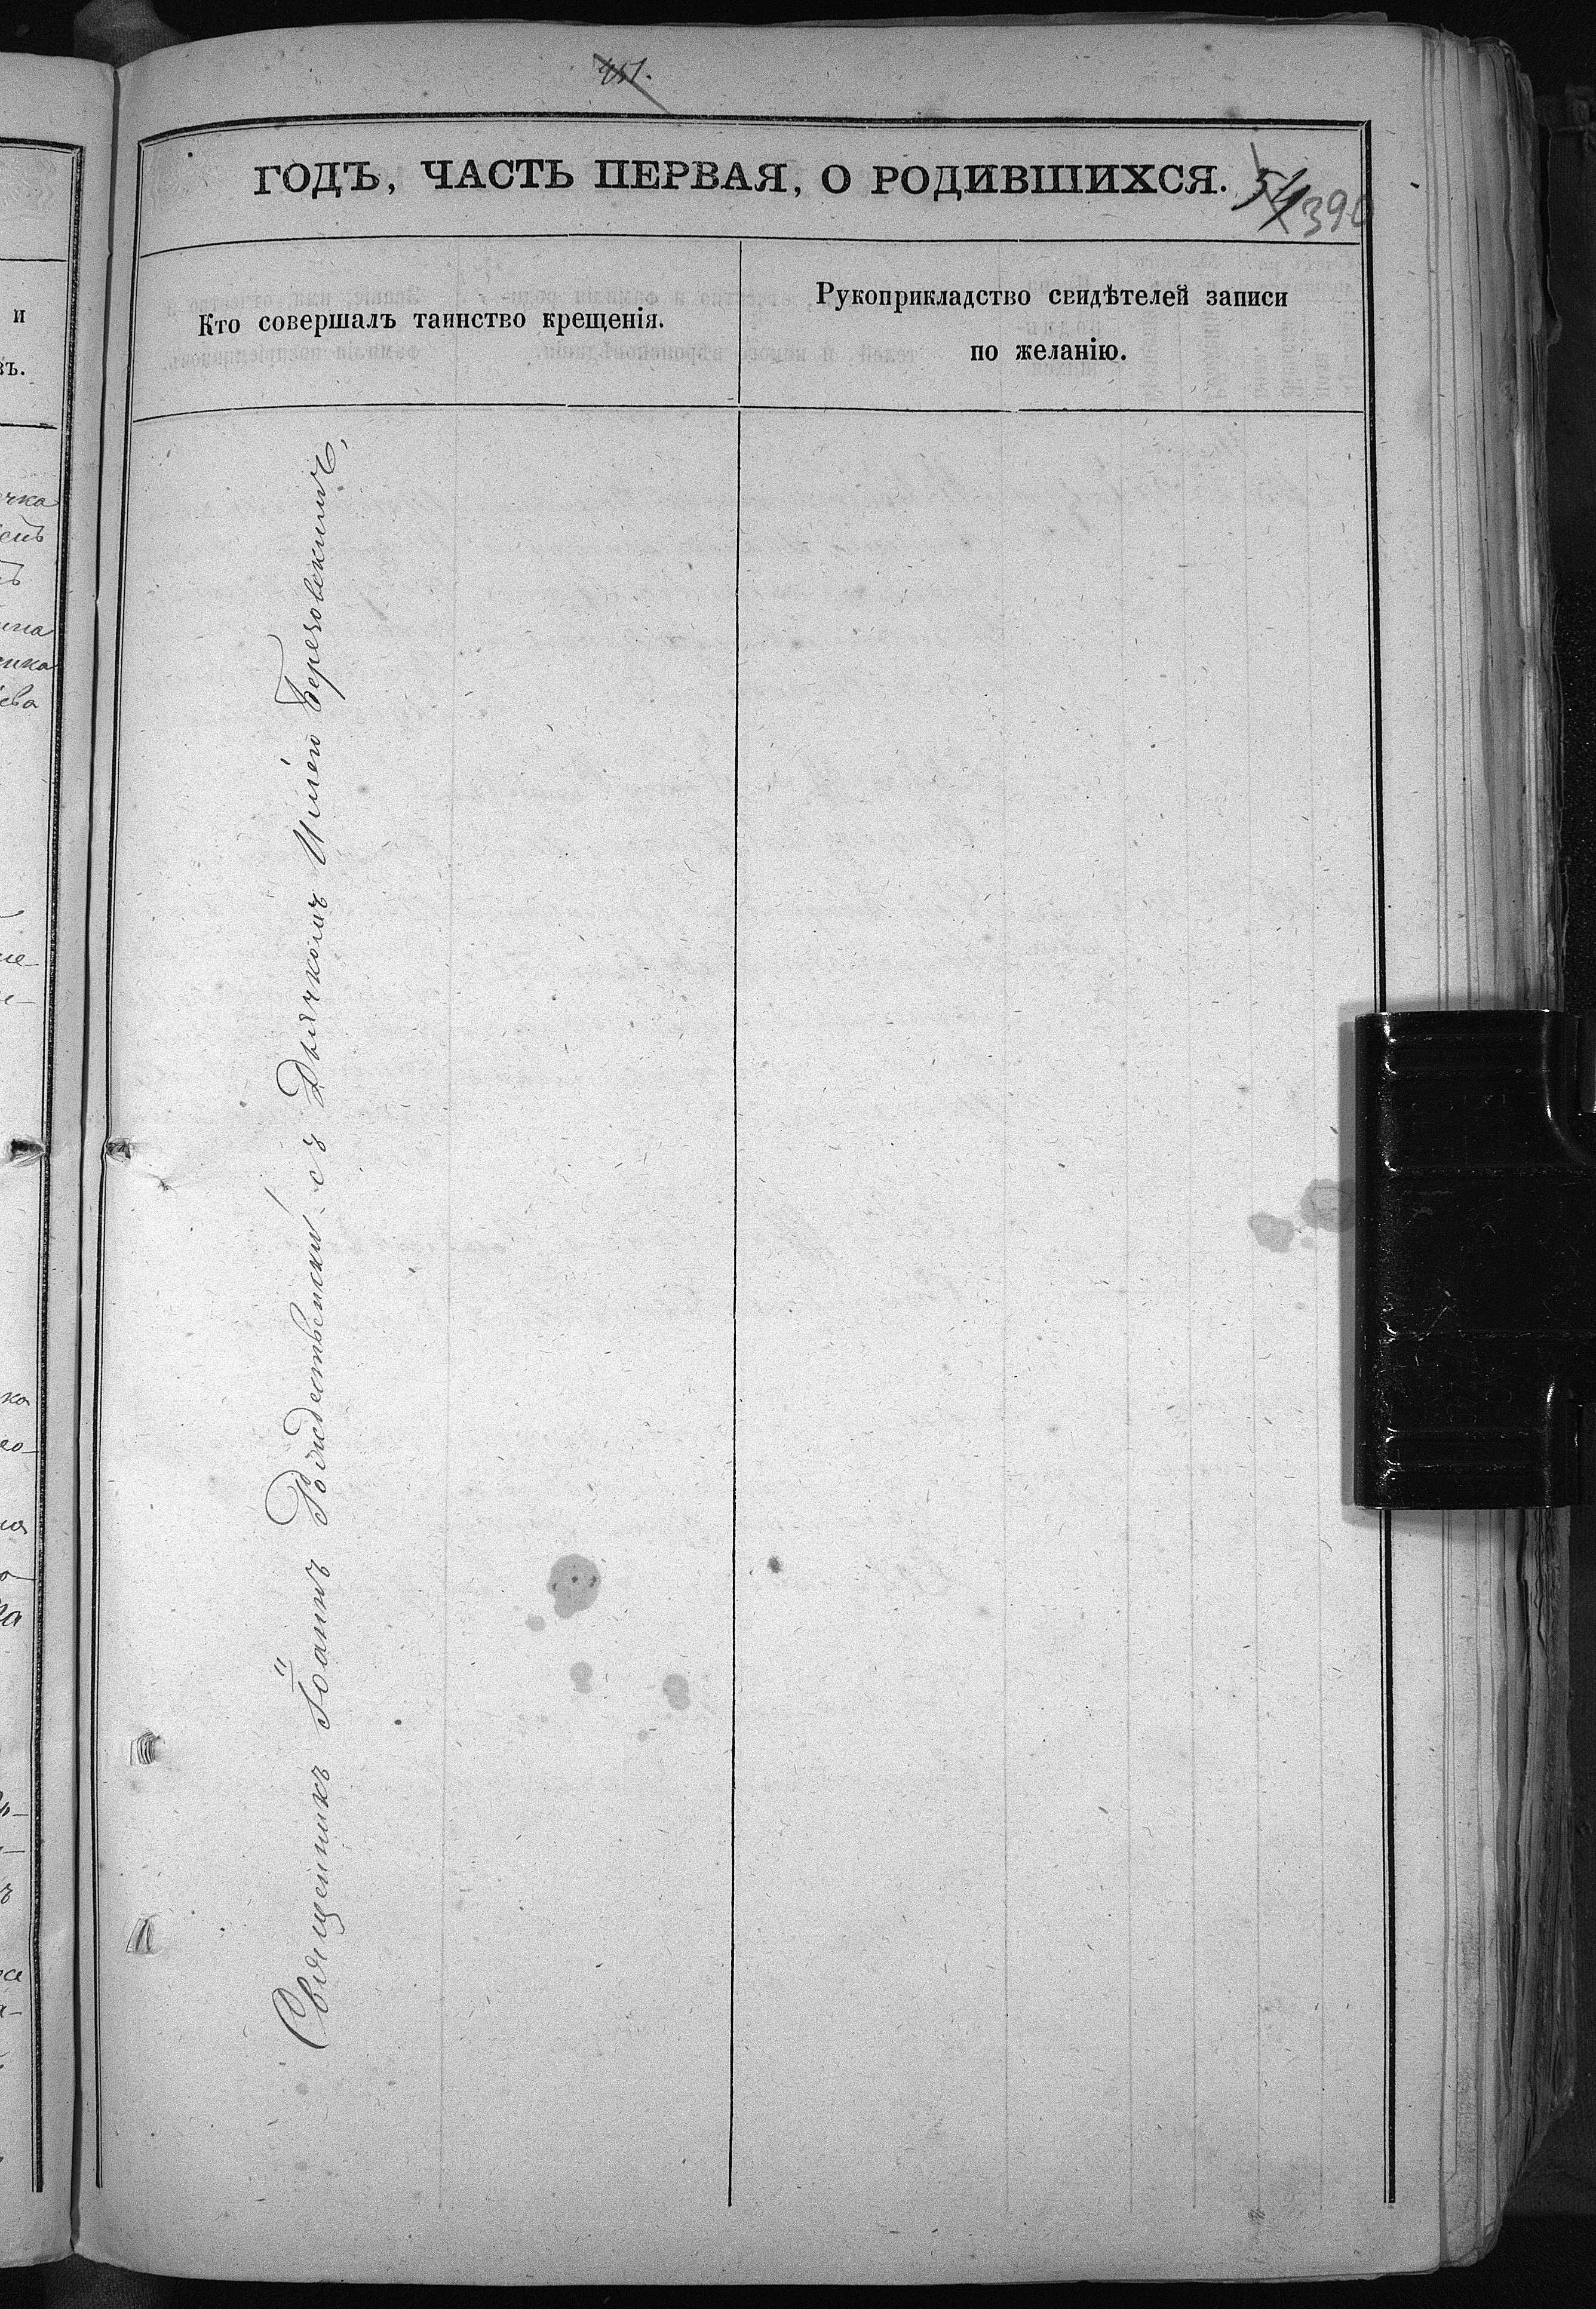 ГОДЪ, ЧАСТЬ ПЕРВАЯ, О РОДИВШИХСЯ.
390
Кто совершалъ таинство крещенія.
Рукоприкладство свидѣтелей записи
по желанію.
Священникъ Іоаннъ Рождественскій съ Дьячкомъ Иліею Березовскимъ,
и
въ.